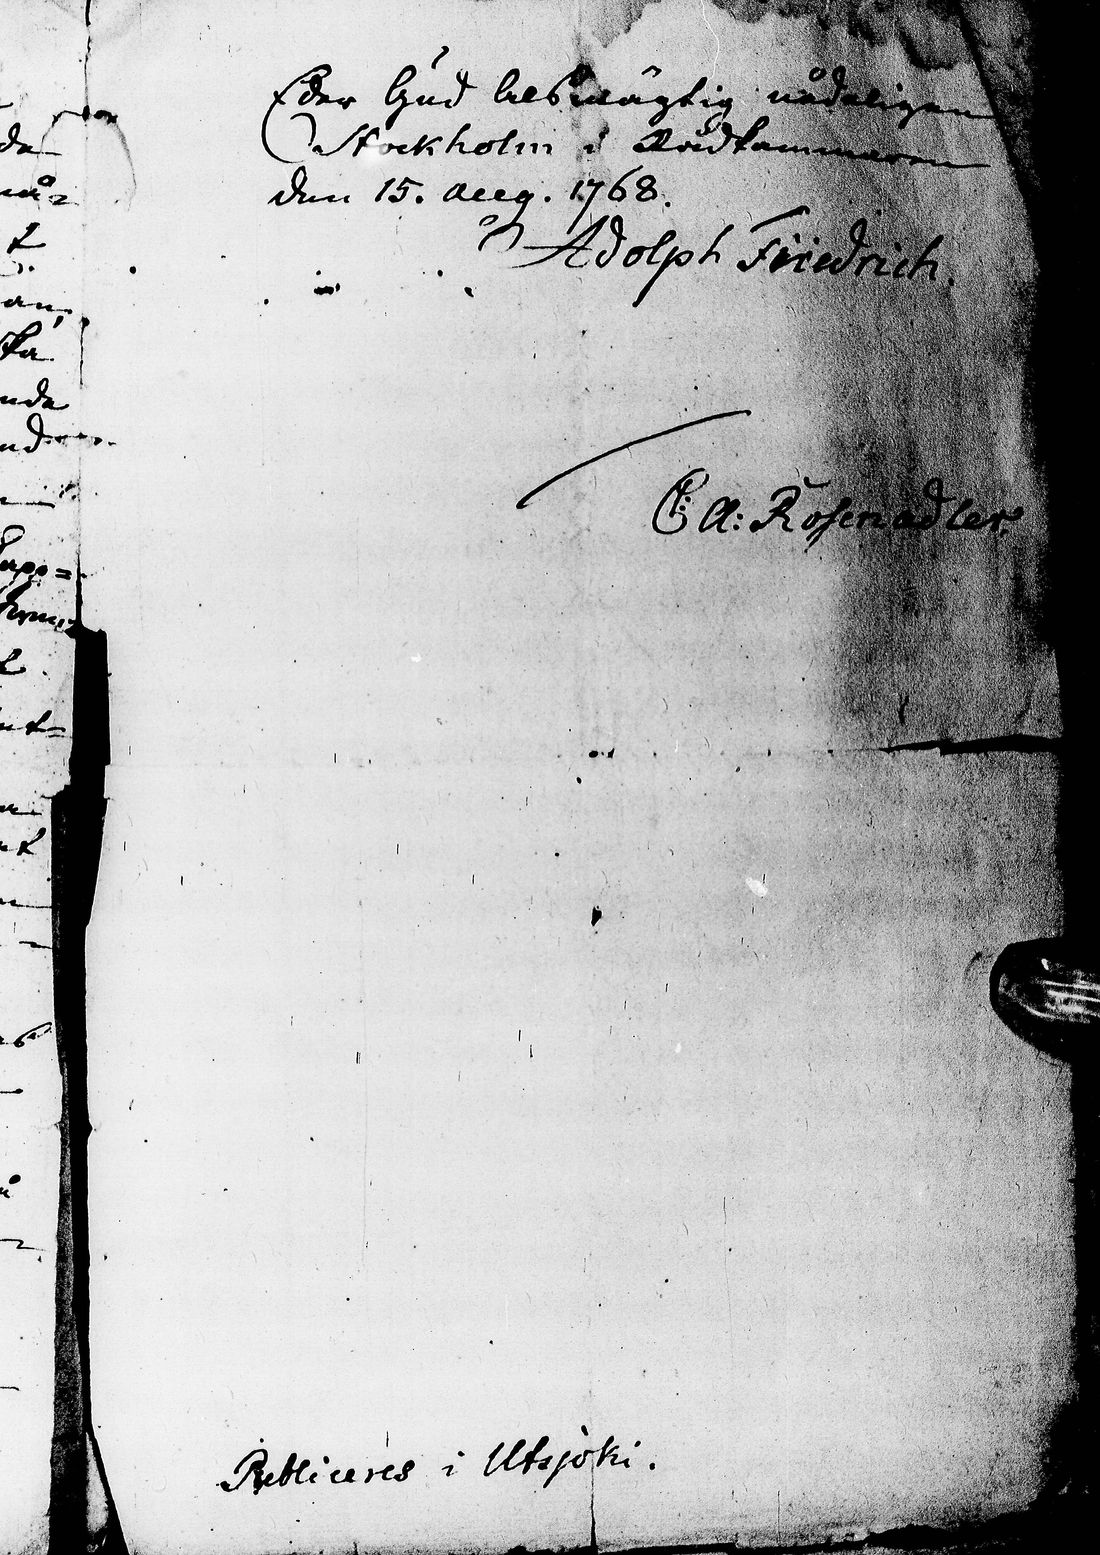 Eder Gud alsmägtig nådeligen
Stockholm i Rådkammaren
den 15. Aug. 1768.
Adolph Friedrich.
C: A: Rosenadler.
Publiceres i Utsjoki.